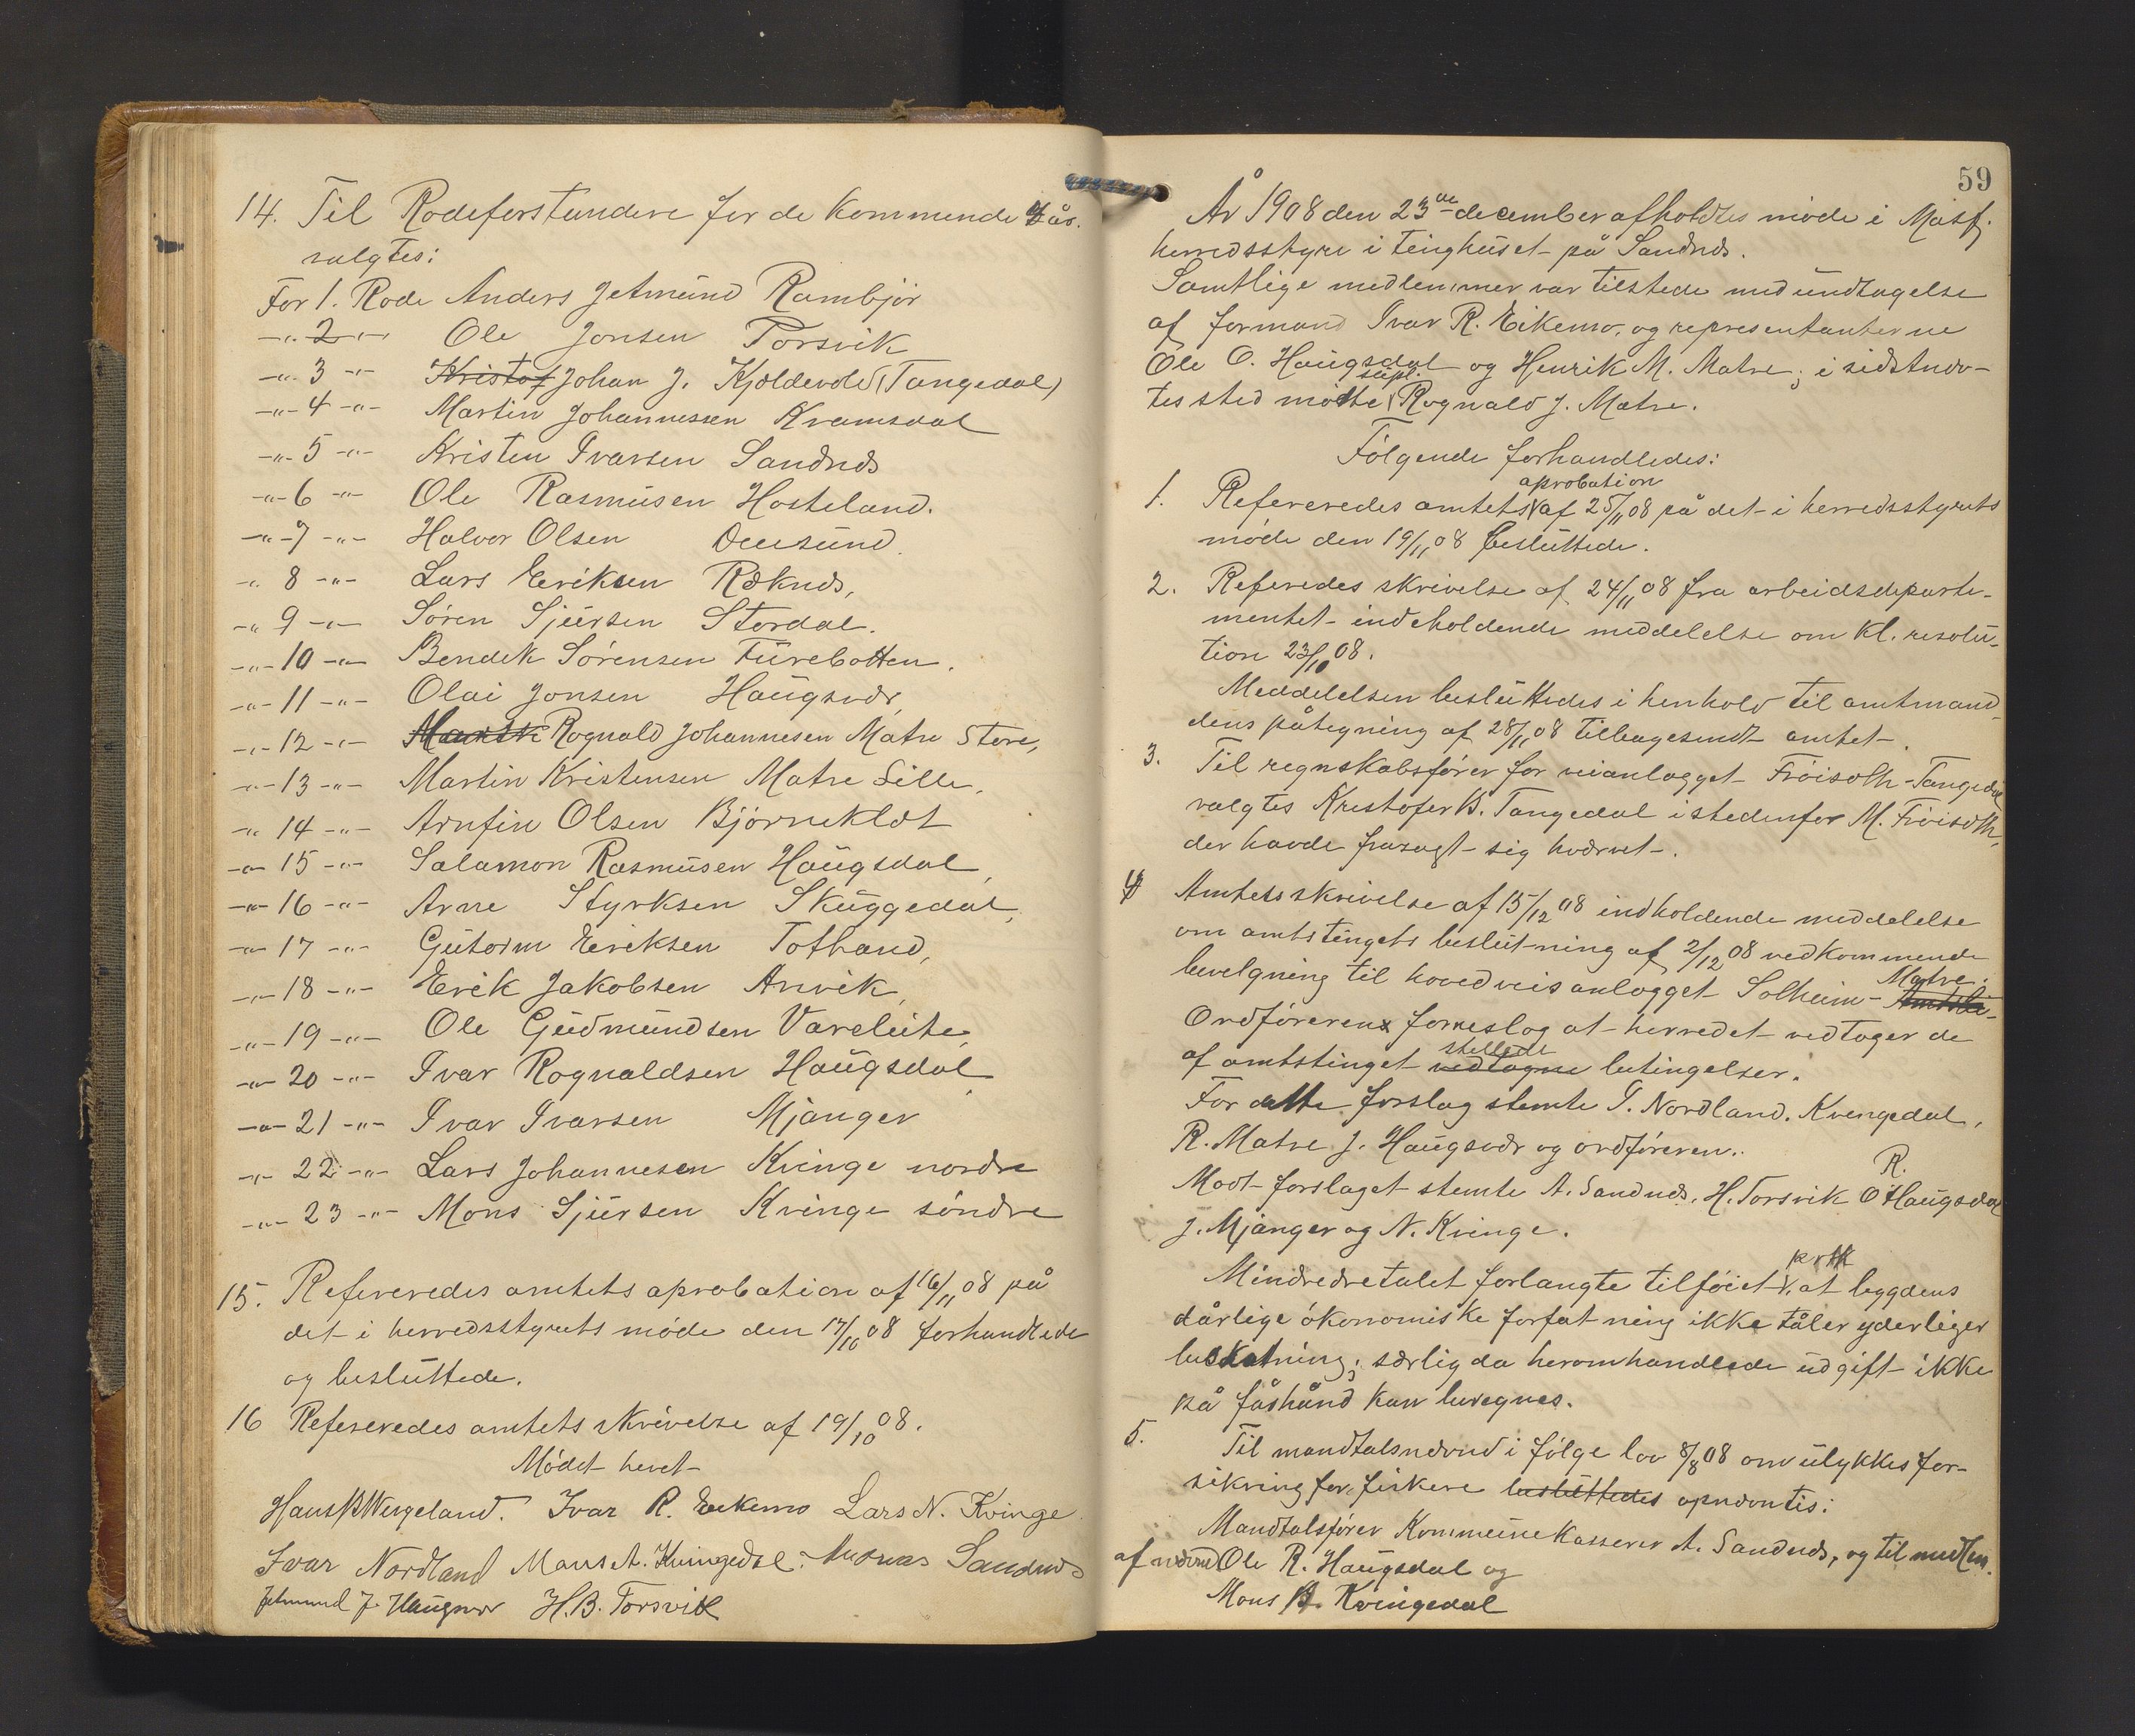 14. Til Rodeforstandere for de kommende 4 år.
valgtes:
For 1. Rode Anders Jetmund Rambjør
-"- 2 -"- Ole Jonsen Torsvik
-"- 3 -"- Kristof Johan J. Kjeldevold (Tangedal)
-"- 4 -"- Martin Johannessen Kramsdal
-"- 5 -"- Kristen Ivarsen Sandnæs
-"- 6 -"- Ole Rasmusen Hosteland.
-"- 7 -"- Halvor Olsen
-"- 8 -"- Lars EriksenRæknæs,
-"- 9 -"- Søren Sjursen Stordal.
-"- 10 -"- Bendik Sørensen Furebotten.
-"- 11 -"- Olai Jonsen Haugsvær,
-"- 12 -"- Rognald Johannesen Matre Store,
-"- 13 -"- Martin Kristensen Matre Lille,
-"- 14 -"- Arnfin Olsen Bjørneklæt
-"- 15 -"- Salamon Rasmusen Haugsdal,
-"- 16 -"- Arne Styrksen Skuggedal,
-"- 17 -"- Gutorm Eriksen Totland,
-"- 18 -"- Erik Jakobsen Anvik,
-"- 19 -"- Ole Gudmundsen Vareluhe,
-"- 20 -"- Ivar Rognaldsen Haugsdal
-"- 21 -"- Ivar Ivarsen Mjanger
-"- 22 -"- Lars Johannesen Kvinge nordre
-"- 23 -"- Mons Sjursen Kvinge søndre
15. Refereredes amtets aprobation af 16/11 08 på
det i herredsstyrets møde den 17/10 08 forhandlede
og besluttede.
16 Refereredes amtets skrivelse af 19/10 08.
Mødet hevet
Hans B Wergeland. Ivar R. Eikemo Lars N. Kvinge
Ivar Nordland Mons A. Kvingedal. Andreas Sandnæs
Jetmund J. Haugsvær H.B. Torsvik
59
År 1908 den 23de december afholdtes møde i Masf.
herredsstyre i tinghuset på Sandnæs.
Samtlige medlemmer var tilstede med undtagelse
af formand Ivar R. Eikemo, og repræsentanterne
Ole O. Haugsdal og Henrik M. Matre; i sidstnæv-
tes sted mødte supl. Rognald J. Matre.
Følgende forhandledes:
1. Refereredes amtets aprobation af 25/11 08 på det i herredsstyrets
møde den 19/11 08 besluttede.
2. Referedes skrivelse af 24/11 08 fra arbeidsdeparte-
mentet indeholdende meddelelse om kl. resolu-
tion 23/10 08.
Meddelelsen besluttedes i henhold til amtmand-
dens påtegning af 28/11 08 tilbagesendt amtet.
3. Til regnskabsfører for veianlægget Frøiseth-Tangedal
valgtes Kristofer B. Tangedal istedenfor M. Frøiseth,
der havde frasagt sig hværvet.
4 Amtets skrivelse af 15/12 08 indholdende meddelelse
om amtstingets beslutning af 2/12 08 vedkommende
bevelgning til hovedveisanlægget Solheim - Matre.
Ordføreren foreslog at herredet vedtager de
af amtstinget vedtagne stellede betingelser.
For dette forslag stemte I. Nordland, Kvingedal,
R. Matre J. Haugsvær og ordføreren.
Mod forslaget stemte A. Sandnæs, H. Torsvik O R. Haugsdal
J. Mjanger og N. Kvinge.
Mindredretalet forlangte tilføiet prtk at bygdens
dårlige økonomiske forfatning ikke tåler yderliger
beskatning; særlig da heromhandlede udgift ikke
på fåshånd kan beregnes.
5. Til mandtalsnævnd i følge lov 8/8 08 om ulykkesfor-
sikring for fiskere besluttedes opnævntes:
Mandtalsfører Kommunekasserer A. Sandnæs, og til medlem.
af nævnd Ole R. Haugsdal og
Mons A. Kvingedal